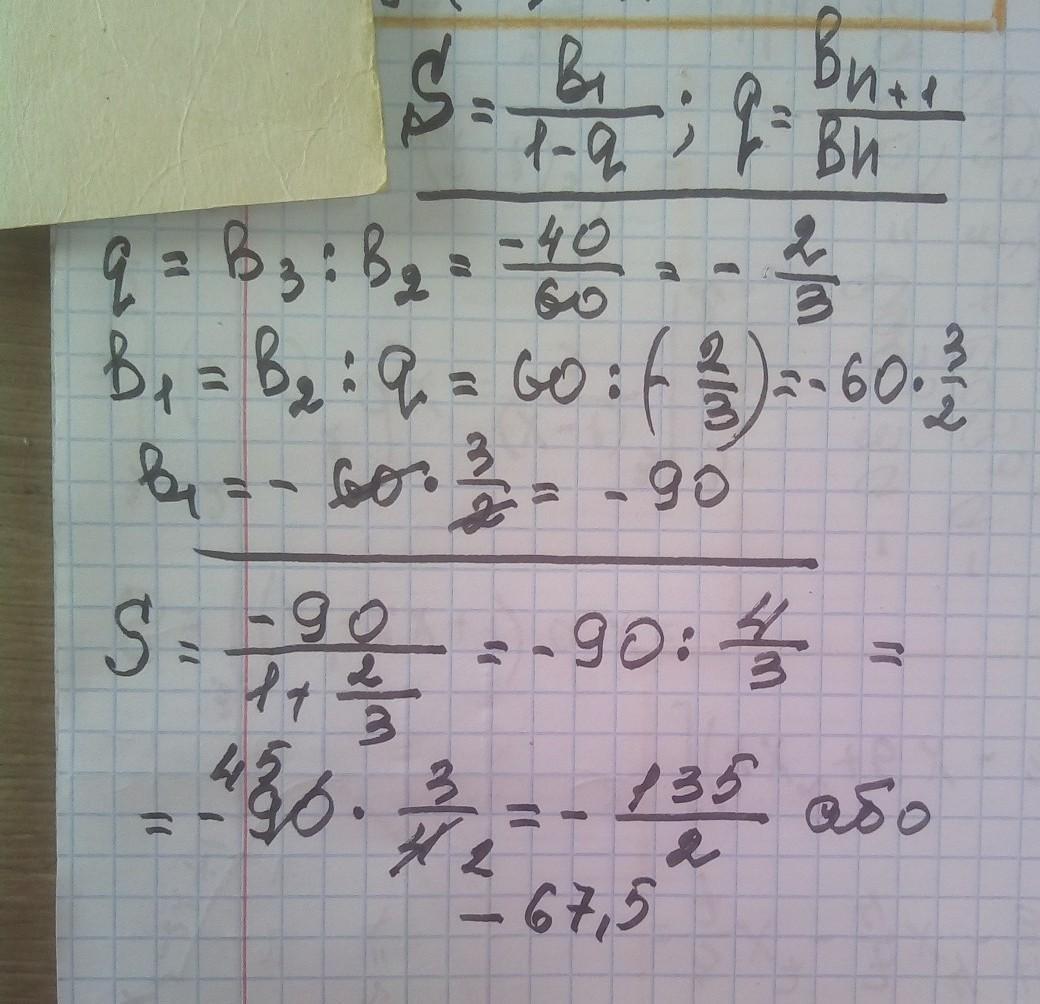 S = B₁/(1-q) ; q = Bn+1/Bn
q = B₃ : B₂ = -40/60 = - 2/3
B₁ = B₂ : q = 60 : (- 2/3) = - 60 · 3/2
B₁ = - 60 · 3/2 = - 90
S = -90/(1+ 2/3) = - 90 : 4/3 =
= - 90 45 · 3/4 2 = - 135/2 або
- 67,5